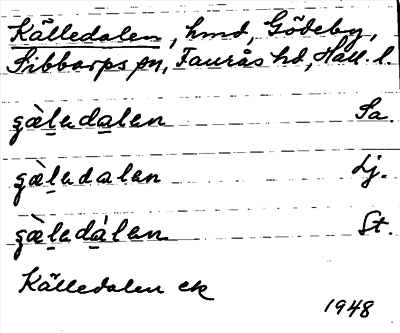 Källedalen, hmd, Gödeby,
Sibbarps sn, Faurås hd, Hall. l.
gæ̀ledalen Sa.
gæ̀ledalen Lj.
gæ̀ledàlen St.
Källedalen ek
1948